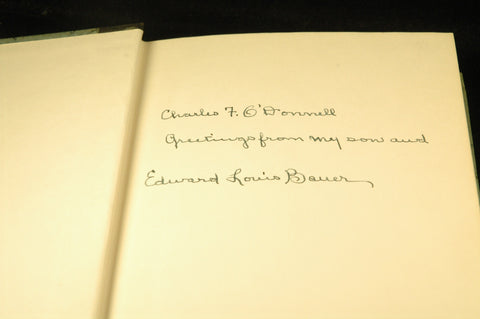 Charles F. O'Donnell
Greetings from my son and
Edward Louis Bauer